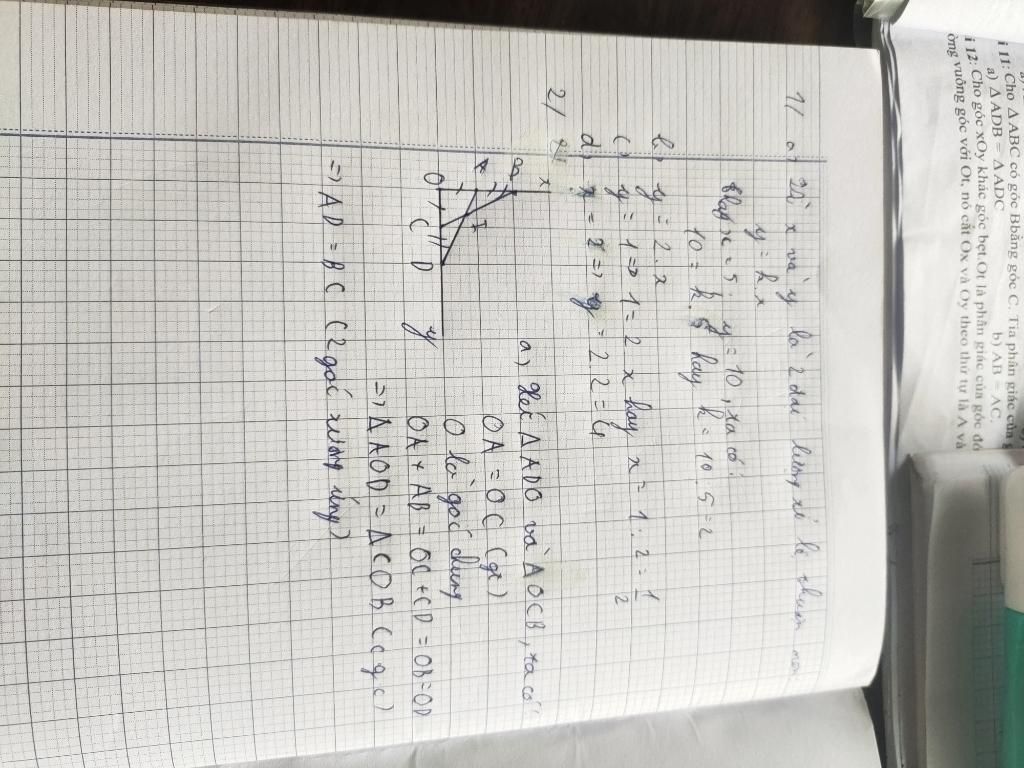 1/ a) Vì x và y là 2 đại lượng tỉ lệ thuận nên
y = k.x
Thay x = 5; y = 10, ta có:
10 = k.5 hay k = 10:5 = 2
b) y = 2.x
c) y = 1 => 1 = 2 x hay x = 1:2 = 1/2
d) x = 2 => y = 2.2 = 4
2/
x
B
A
I
O C D y
a) Xét Δ ADO và Δ OCB, ta có:
OA = OC (gt)
O là góc chung
OA + AB = OC + CD = OB = OD
=> Δ AOD = Δ COB (cgc)
=> AD = BC (2 góc tương ứng)
i 11: Cho Δ ABC có góc B bằng góc C. Tia phân giác của g
a) Δ ADB = Δ ADC b) AB = AC.
i 12: Cho góc xOy khác góc bẹt. Ot là phân giác của góc đó
ờng vuông góc với Ot, nó cắt Ox và Oy theo thứ tự là A và